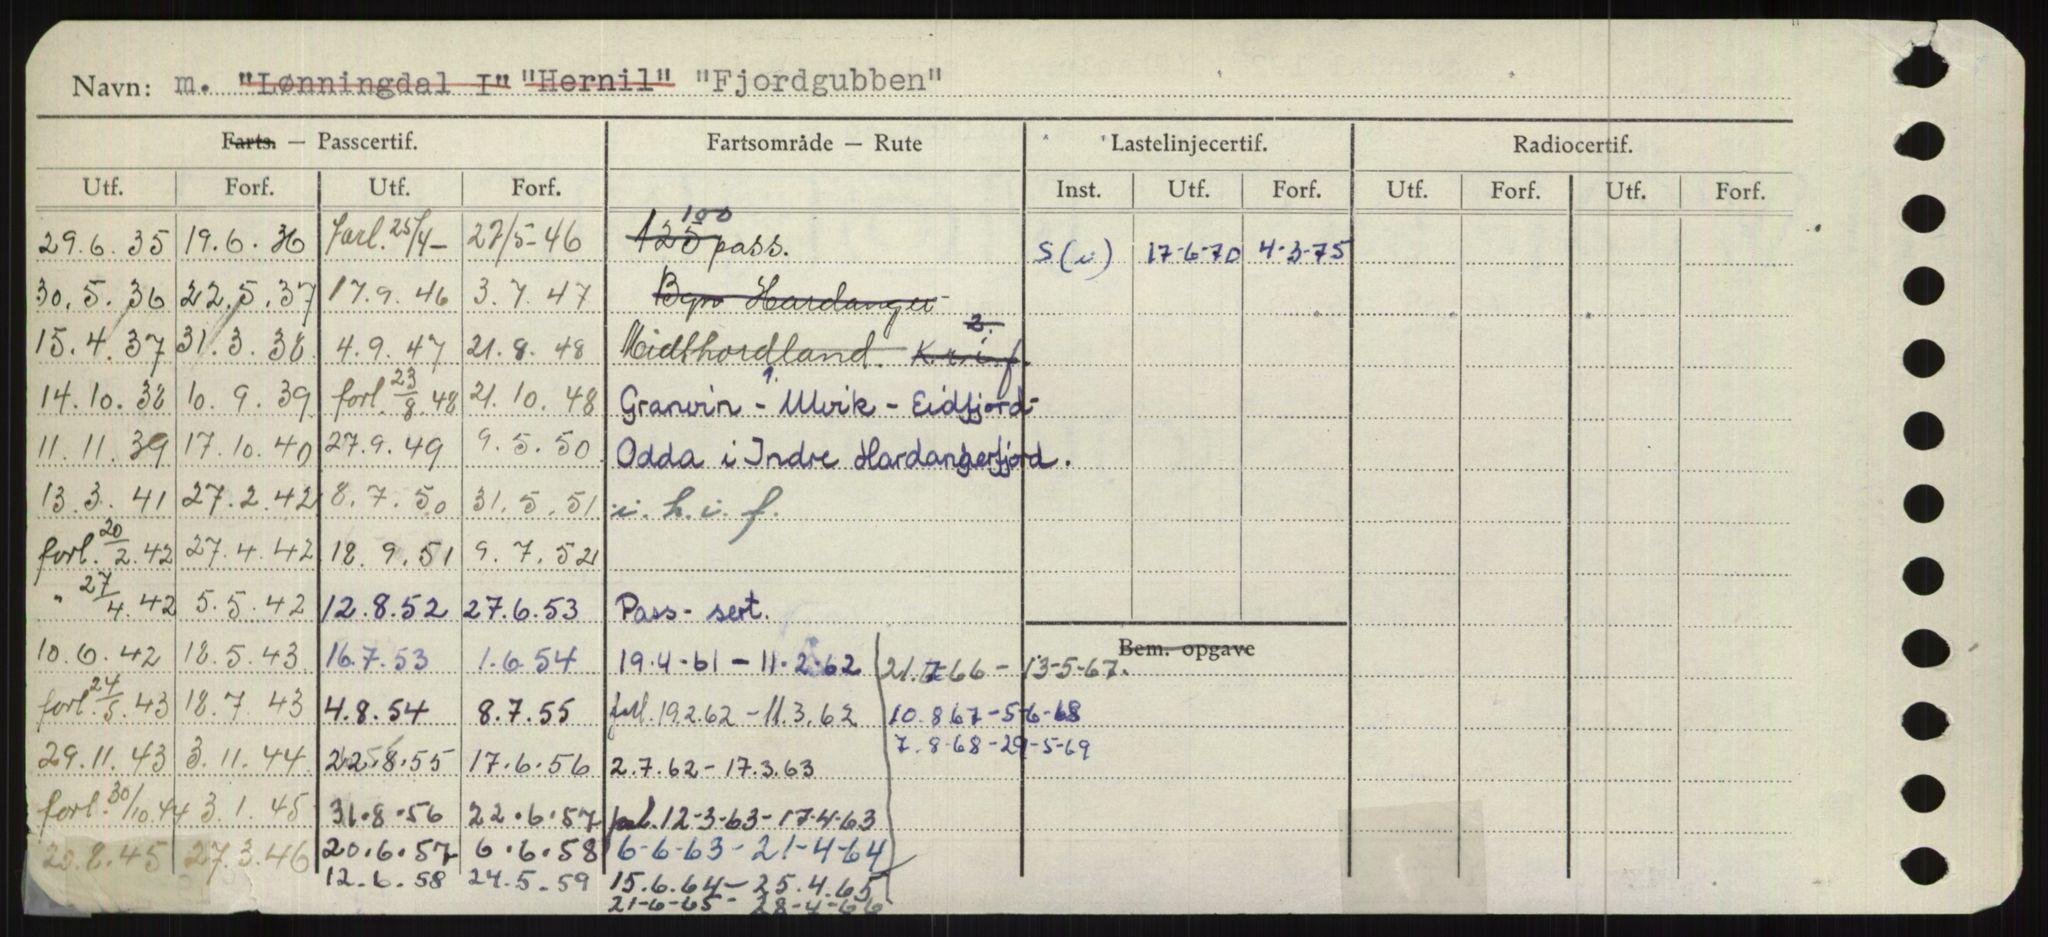 Navn: m. "Lønningdal I" "Hernil" "Fjordgubben"
Farts. — Passcertif. Fartsområde — Rute Lastelinjecertif. Radiocertif.
Utf. Forf. Utf. Forf. Inst. Utf. Forf. Utf. Forf. Utf. Forf.
100
29.6.35 19.6.36 forl. 25/4- 27/5-46 125 pass. S(i) 17-6-70 4-3-75
30.5.36 22.5.37 17.9.46 3.7.47 Bgn Hardanger
2.
15.4.37 31.3.38 4.9.47 21.8.48 Midthordland. K.r.i.f.
14.10.38 10.9.39 forl. 23/8.48 21.10.48 Granvin - Ulvik - Eidfjord-
11.11.39 17.10.40 27.9.49 9.5.50 Odda i Indre Hardangerfjord.
13.3.41 27.2.42 8.7.50 31.5.51 i.h.i.f.
forl. 20/2.42 27.4.42 18.9.51 9.7.52
" 27/4.42 5.5.42 12.8.52 27.6.53 Pass- sert.
Bem. opgave
10.6.42 18.5.43 16.7.53 1.6.54 19.4-61 - 11.2.62 21.7-66 - 13-5-67.
forl. 24/5.43 18.7.43 4.8.54 8.7.55 forl. 19.2.62 - 11.3.62 10.8.67-5-6-68
7.8-68-29-5-69
29.11.43 3.11.44 22.8.55 17.6.56 2.7.62 - 17.3.63
forl. 30/10.44 3.1.45 31.8.56 22.6.57 forl. 12-3-63 - 17-4-63
20.8.45 27.3.46 20.6.57 6.6.58 6-6-63 - 21-4-64
12.6.58 24.5.59 15.6.64 - 25.4.65
21-6-65 - 28-4-66